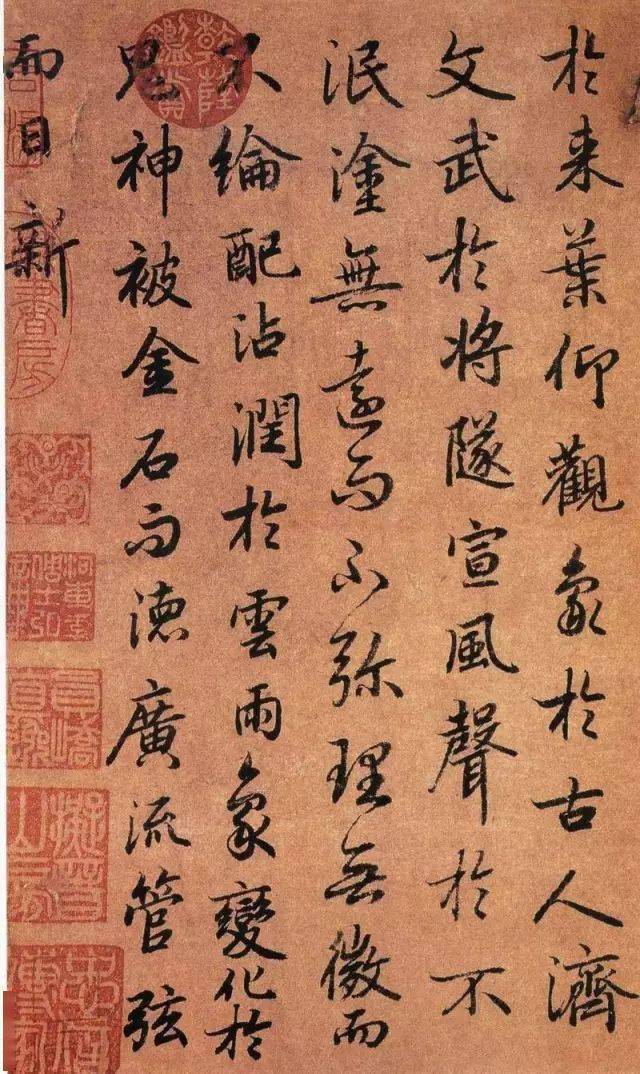 於来葉仰觀象於古人濟
文武於將隧宣風聲於不
泯塗無遠而不弥理無微而
不綸配沾潤於雲雨象變化於
鬼神被金石而徳廣流管弦
而日新
乾隆鑑賞